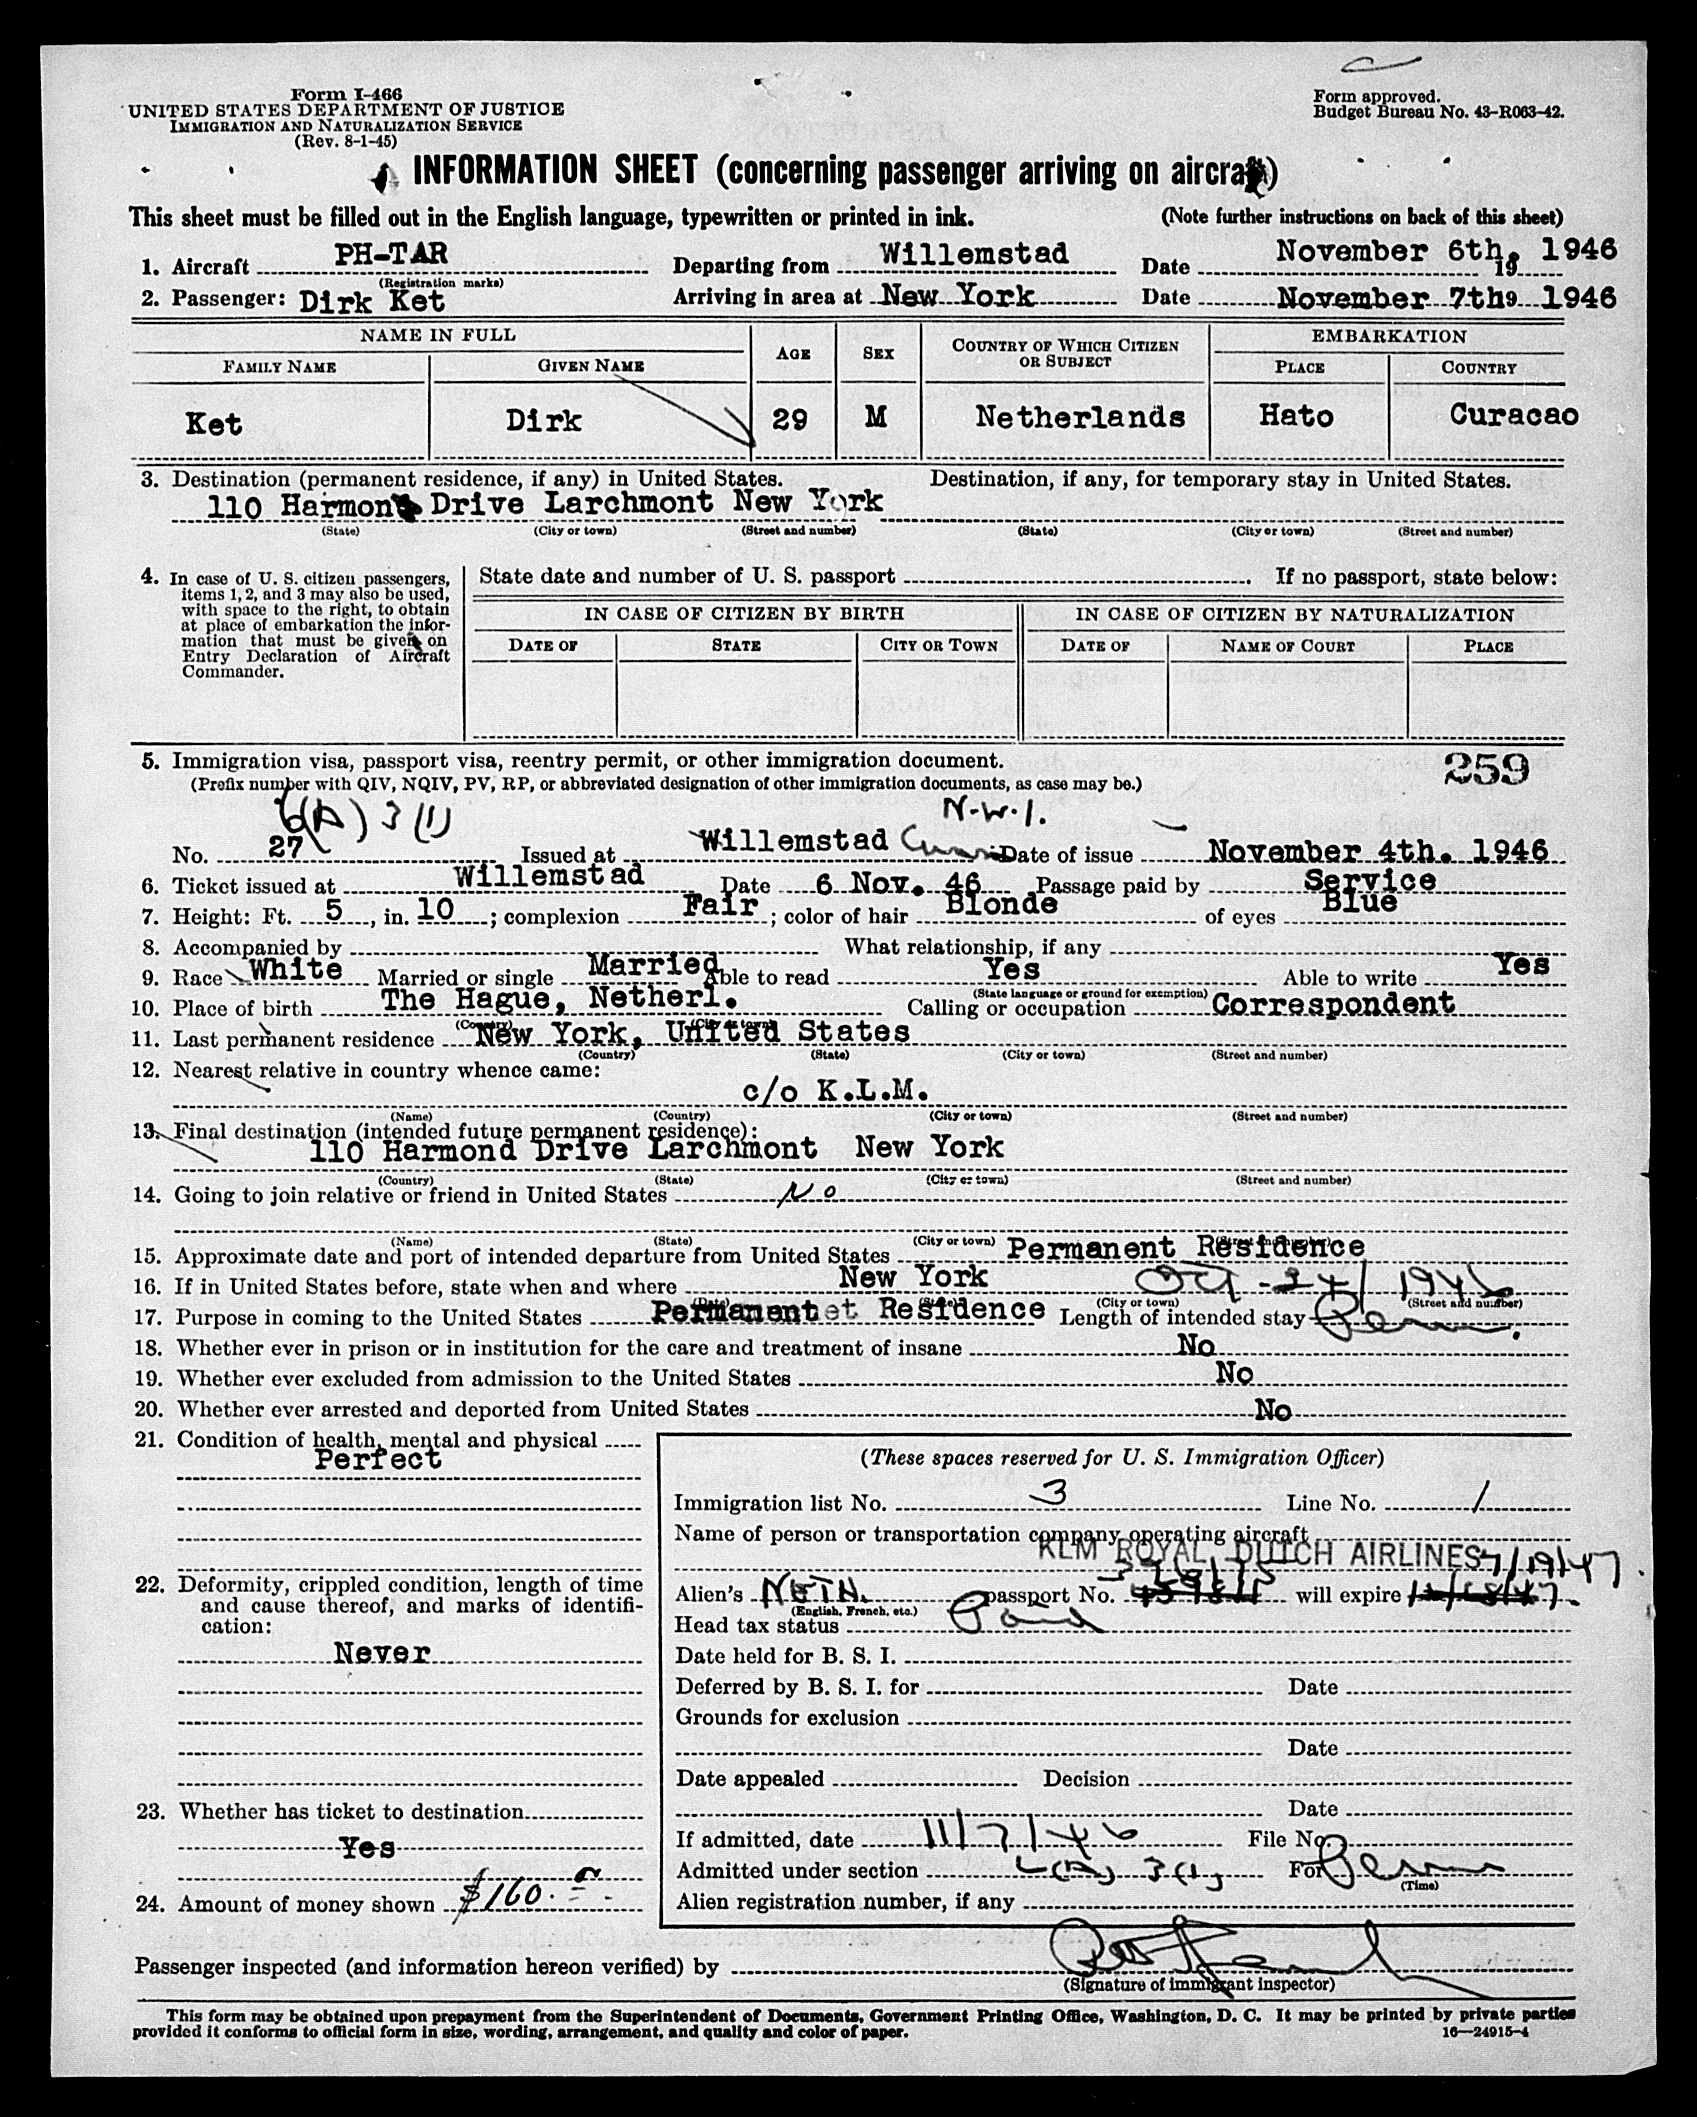 Form I-466
UNITED STATES DEPARTMENT OF JUSTICE
IMMIGRATION AND NATURALIZATION SERVICE
(Rev. 8-1-45)
Form approved.
Budget Bureau No. 43-R063-42.
INFORMATION SHEET (concerning passenger arriving on aircraft)
This sheet must be filled out in the English language, typewritten or printed in ink. (Note further instructions on back of this sheet)
1. Aircraft PH-TAR Departing from Willemstad Date November 6th, 19 1946
(Registration marks)
2. Passenger: Dirk Ket Arriving in area at New York Date November 7th, 1946
NAME IN FULL AGE SEX COUNTRY OF WHICH CITIZEN OR SUBJECT EMBARKATION
FAMILY NAME GIVEN NAME PLACE COUNTRY
Ket Dirk 29 M Netherlands Hato Curacao
3. Destination (permanent residence, if any) in United States. Destination, if any, for temporary stay in United States.
110 Harmon Drive Larchmont New York
(State) (City or town) (Street and number) (State) (City or town) (Street and number)
4. In case of U. S. citizen passengers, items 1, 2, and 3 may also be used, with space to the right, to obtain at place of embarkation the information that must be given on Entry Declaration of Aircraft Commander.
State date and number of U. S. passport . If no passport, state below:
IN CASE OF CITIZEN BY BIRTH IN CASE OF CITIZEN BY NATURALIZATION
DATE OF STATE CITY OR TOWN DATE OF NAME OF COURT PLACE
5. Immigration visa, passport visa, reentry permit, or other immigration document. 259
(Prefix number with QIV, NQIV, PV, RP, or abbreviated designation of other immigration documents, as case may be.)
6(A) 3 (1) N.W.I.
No. 27 Issued at Willemstad Date of issue November 4th. 1946
6. Ticket issued at Willemstad Date 6 Nov. 46 Passage paid by Service
7. Height: Ft. 5, in. 10; complexion Fair; color of hair Blonde of eyes Blue
8. Accompanied by What relationship, if any
9. Race White Married or single Married Able to read Yes Able to write Yes
(State language or ground for exemption)
10. Place of birth The Hague, Netherl. Calling or occupation Correspondent
(Country) (City or town)
11. Last permanent residence New York, United States
(Country) (State) (City or town) (Street and number)
12. Nearest relative in country whence came:
c/o K.L.M.
(Name) (Country) (City or town) (Street and number)
13. Final destination (intended future permanent residence):
110 Harmond Drive Larchmont New York
(Country) (State) (City or town) (Street and number)
14. Going to join relative or friend in United States No
(Name) (State) (City or town) (Street and number)
15. Approximate date and port of intended departure from United States Permanent Residence
16. If in United States before, state when and where New York Oct - 24/ 1946
(Date) (State) (City or town) (Street and number)
17. Purpose in coming to the United States Permanent Residence Length of intended stay Perm.
18. Whether ever in prison or in institution for the care and treatment of insane No
19. Whether ever excluded from admission to the United States No
20. Whether ever arrested and deported from United States No
21. Condition of health, mental and physical
Perfect
22. Deformity, crippled condition, length of time and cause thereof, and marks of identification:
Never
23. Whether has ticket to destination
Yes
24. Amount of money shown $160.
(These spaces reserved for U. S. Immigration Officer)
Immigration list No. 3 Line No. 1
Name of person or transportation company operating aircraft
KLM ROYAL DUTCH AIRLINES 7/19/47
Alien's NETH. passport No. will expire
(English, French, etc.)
Head tax status
Date held for B. S. I.
Deferred by B. S. I. for Date
Grounds for exclusion
Date
Date appealed Decision
Date
If admitted, date 11/7/46 File No.
Admitted under section 6(A) 3(1) For Perm
(Time)
Alien registration number, if any
Passenger inspected (and information hereon verified) by
(Signature of immigrant inspector)
This form may be obtained upon prepayment from the Superintendent of Documents, Government Printing Office, Washington, D. C. It may be printed by private parties
provided it conforms to official form in size, wording, arrangement, and quality and color of paper. 16—24915-4